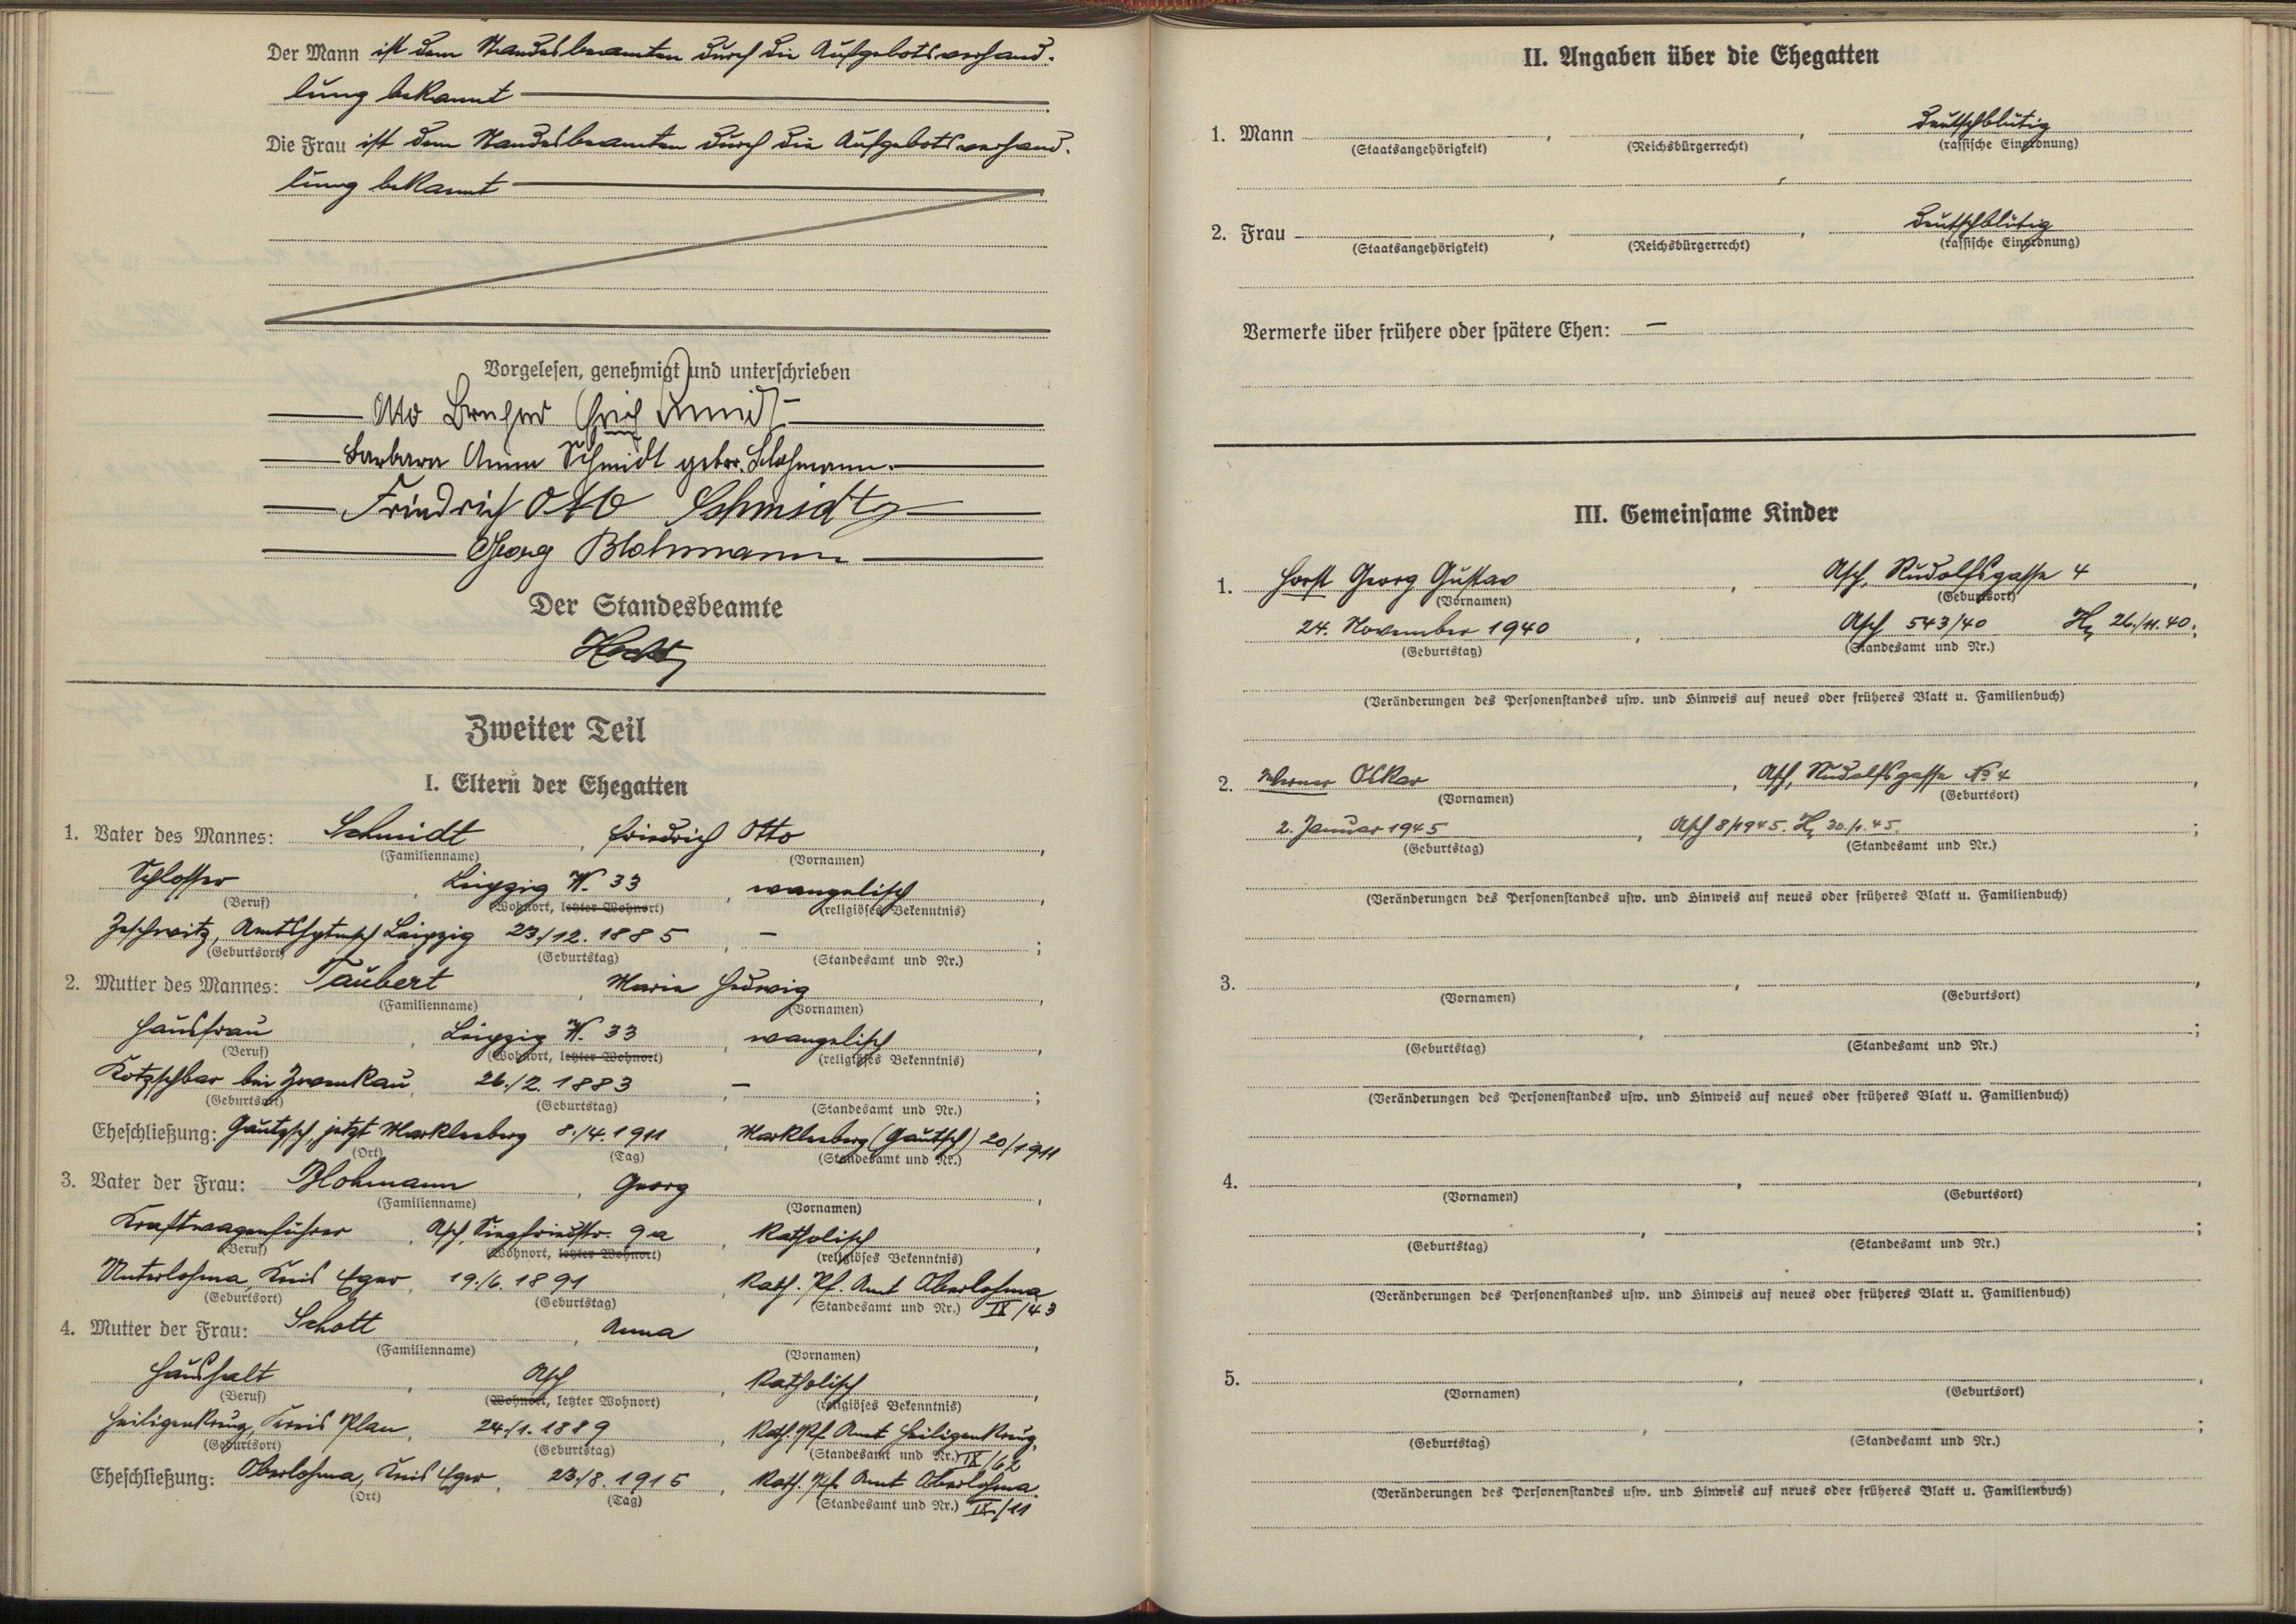 Der Mann ist dem Standesbeamten durch die Aufgebotsverhand-
lung bekannt
Die Frau ist dem Standesbeamten durch die Aufgebotsverhand-
lung bekannt
Vorgelesen, genehmigt und unterschrieben
Otto Erich Schmidt
Barbara Anna Schmidt gebor. Blohmann.
Friedrich Otto Schmidt
Georg Blohmann
Der Standesbeamte
Zweiter Teil
I. Eltern der Ehegatten
1. Vater des Mannes: Schmidt, Friedrich Otto,
(Familienname) (Vornamen)
Schlosser, Leipzig W. 33, evangelisch,
(Beruf) (Wohnort, letzter Wohnort) (religiöses Bekenntnis)
Zeschwitz, Amtshptmsch Leipzig 23./12. 1885, – ;
(Geburtsort) (Geburtstag) (Standesamt und Nr.)
2. Mutter des Mannes: Taubert, Marie Hedwig,
(Familienname) (Vornamen)
Hausfrau, Leipzig W. 33, evangelisch,
(Beruf) (Wohnort, letzter Wohnort) (religiöses Bekenntnis)
Kotzschbar bei Zwenkau, 26./2. 1883, – ;
(Geburtsort) (Geburtstag) (Standesamt und Nr.)
Eheschließung: Gautzsch, jetzt Markleeberg 8./4. 1911, Markleeberg (Gautsch) 20/1911
(Ort) (Tag) (Standesamt und Nr.)
3. Vater der Frau: Blohmann, Georg,
(Familienname) (Vornamen)
Kraftwagenführer, Asch, Siegfriedstr. 9a, katholisch,
(Beruf) (Wohnort, letzter Wohnort) (religiöses Bekenntnis)
Unterlohma, Kreis Eger, 19./6. 1891, Kath. Pf. Amt Oberlohma
(Geburtsort) (Geburtstag) (Standesamt und Nr.) IX/43
4. Mutter der Frau: Schott, Anna,
(Familienname) (Vornamen)
Haushalt, Asch, katholisch,
(Beruf) (Wohnort, letzter Wohnort) (religiöses Bekenntnis)
Heiligenkreuz, Kreis Plan, 24./1. 1889, Kath. Pf. Amt Heiligenkreuz,
(Geburtsort) (Geburtstag) (Standesamt und Nr.) IX/62
Eheschließung: Oberlohma, Kreis Eger, 23./8. 1915, Kath. Pf. Amt Oberlohma.
(Ort) (Tag) (Standesamt und Nr.) IX/11
II. Angaben über die Ehegatten
1. Mann , , deutschblütig
(Staatsangehörigkeit) (Reichsbürgerrecht) (rassische Einordnung)
2. Frau , , deutschblütig
(Staatsangehörigkeit) (Reichsbürgerrecht) (rassische Einordnung)
Vermerke über frühere oder spätere Ehen: –
III. Gemeinsame Kinder
1. Horst Georg Gustav, Asch, Rudolfsgasse 4,
(Vornamen) (Geburtsort)
24. November 1940, Asch 543/40 26./11. 40.;
(Geburtstag) (Standesamt und Nr.)
(Veränderungen des Personenstandes usw. und Hinweis auf neues oder früheres Blatt u. Familienbuch)
2. Werner Oskar, Asch, Rudolfsgasse No 4,
(Vornamen) (Geburtsort)
2. Januar 1945, Asch 8/1945. 30./1. 45. ;
(Geburtstag) (Standesamt und Nr.)
(Veränderungen des Personenstandes usw. und Hinweis auf neues oder früheres Blatt u. Familienbuch)
3. , ,
(Vornamen) (Geburtsort)
, ;
(Geburtstag) (Standesamt und Nr.)
(Veränderungen des Personenstandes usw. und Hinweis auf neues oder früheres Blatt u. Familienbuch)
4. , ,
(Vornamen) (Geburtsort)
, ;
(Geburtstag) (Standesamt und Nr.)
(Veränderungen des Personenstandes usw. und Hinweis auf neues oder früheres Blatt u. Familienbuch)
5. , ,
(Vornamen) (Geburtsort)
, ;
(Geburtstag) (Standesamt und Nr.)
(Veränderungen des Personenstandes usw. und Hinweis auf neues oder früheres Blatt u. Familienbuch)